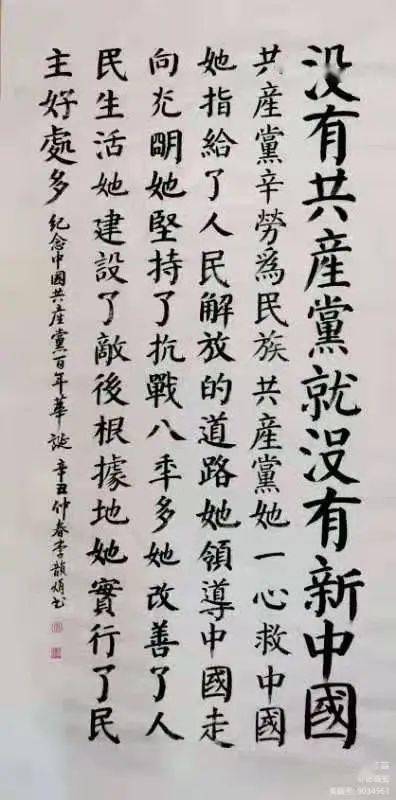 没有共産黨就没有新中國
共産黨辛勞爲民族共産黨她一心救中國
她指給了人民解放的道路她領導中國走
向光明她堅持了抗戰八年多她改善了人
民生活她建設了敵後根據地她實行了民
主好處多
紀念中國共産黨百年華誕 辛丑仲春李韻娟书